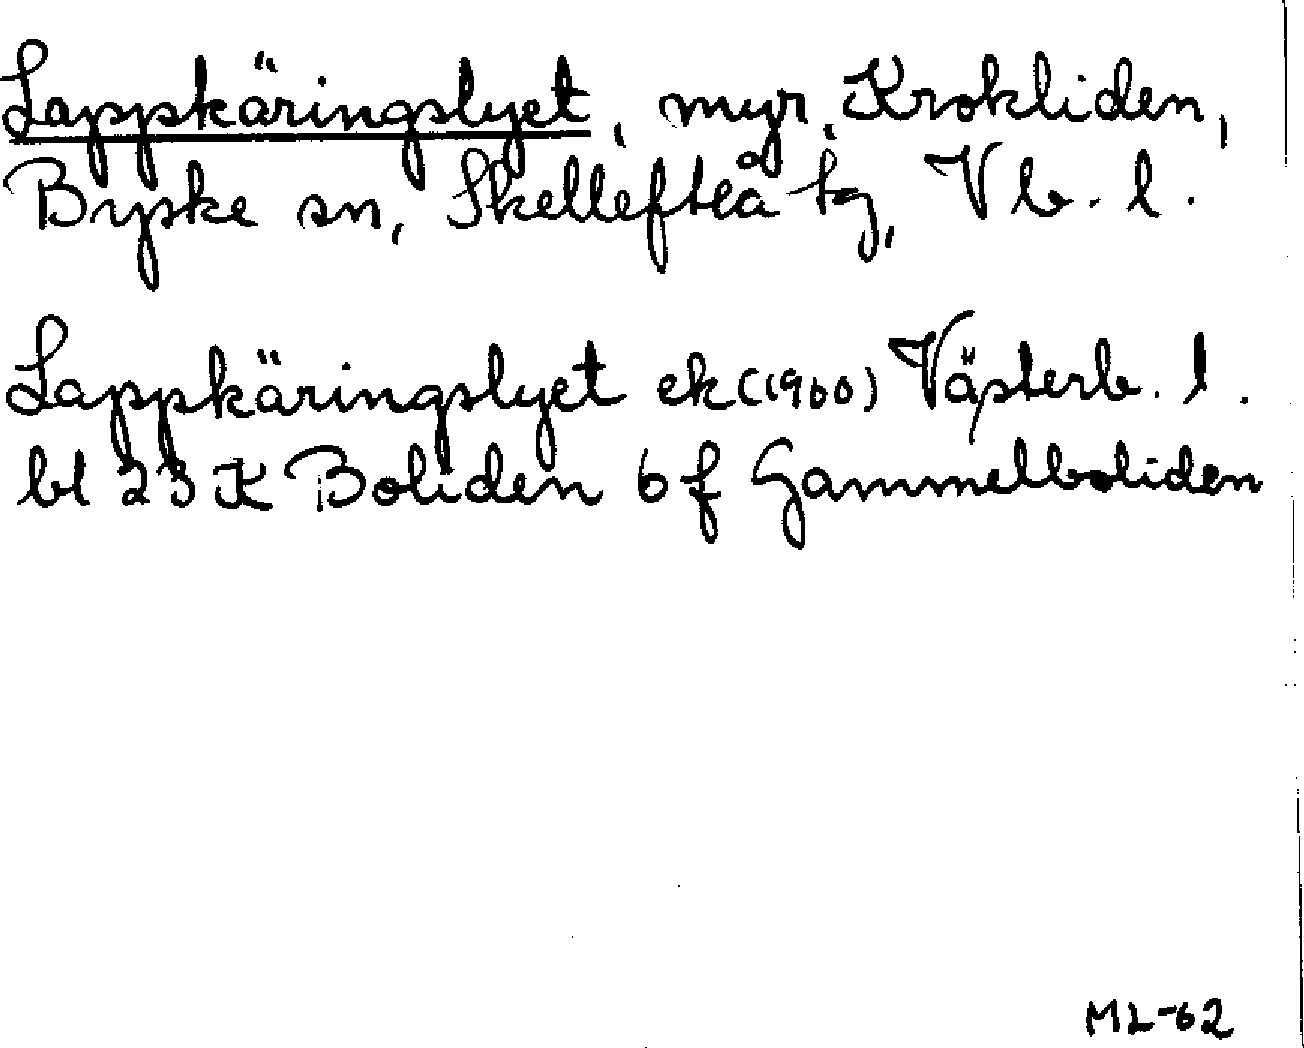 Lappkäringslyet, myr, Krokliden,
Byske sn, Skellefteå tg, Vb. l.
Lappkäringslyet ek (1960) Västerb. l.
bl 23 K Boliden 6 f Gammelboliden
ML-62